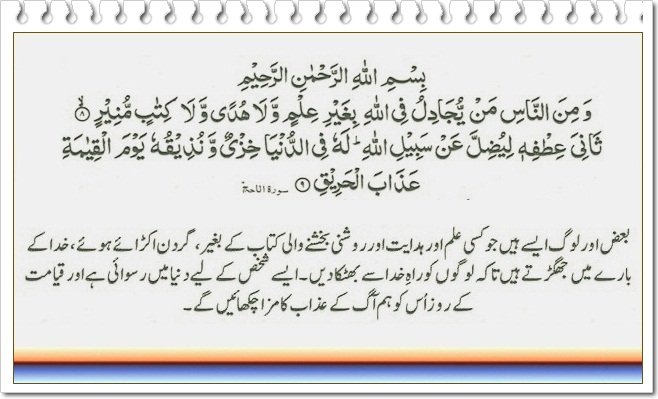 بِسْمِ اللهِ الرَّحْمٰنِ الرَّحِيْمِ
وَمِنَ النَّاسِ مَنْ يُّجَادِلُ فِى اللهِ بِغَيْرِ عِلْمٍ وَّلَا هُدًى وَّلَا كِتٰبٍ مُّنِيْرٍ ۙ﴿۸﴾
ثَانِىَ عِطْفِهٖ لِيُضِلَّ عَنْ سَبِيْلِ اللهِ ؕ لَهٗ فِى الدُّنْيَا خِزْىٌ وَّنُذِيْقُهٗ يَوْمَ الْقِيٰمَةِ
عَذَابَ الْحَرِيْقِ ﴿۹﴾ سورۃ الحج
بعض اور لوگ ایسے ہیں جو کسی علم اور ہدایت اور روشنی بخشنے والی کتاب کے بغیر، گردن اکڑائے ہوئے، خدا کے
بارے میں جھگڑتے ہیں تاکہ لوگوں کو راہِ خدا سے بھٹکا دیں۔ ایسے شخص کے لیے دنیا میں رسوائی ہے اور قیامت
کے روز اُس کو ہم آگ کے عذاب کا مزا چکھائیں گے۔